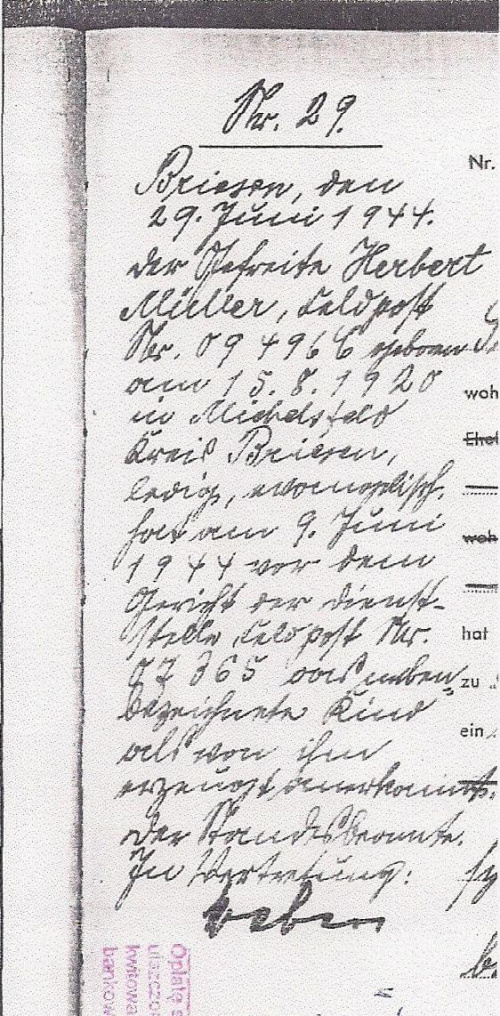 Nr. 29.
Briesen, den
29. Juni 1944.
Der Gefreite Herbert
Müller, Feldpost
Nr. 09496 C geboren
am 15.8.1920
in Michelsfeld
Kreis Briesen,
ledig, evangelisch,
hat am 9. Juni
1944 vor dem
Gericht der Dienst-
stelle Feldpost Nr.
07365 das neben-
bezeichnete Kind
als von ihm
erzeugt anerkannt.
Der Standesbeamte.
In Vertretung:
Nr.
woh
Ehe
woh
hat
zu
ein
Opłatę s
uiszczo
kwitowa
bankow